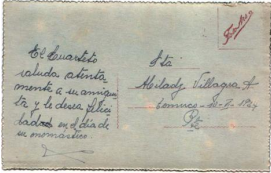 El Cuartito
saluda atenta-
mente a su amigui-
ta y le desea felici-
dades en el día de
su onomástico.
Srta
Milady Villagra A
Temuco
Pte